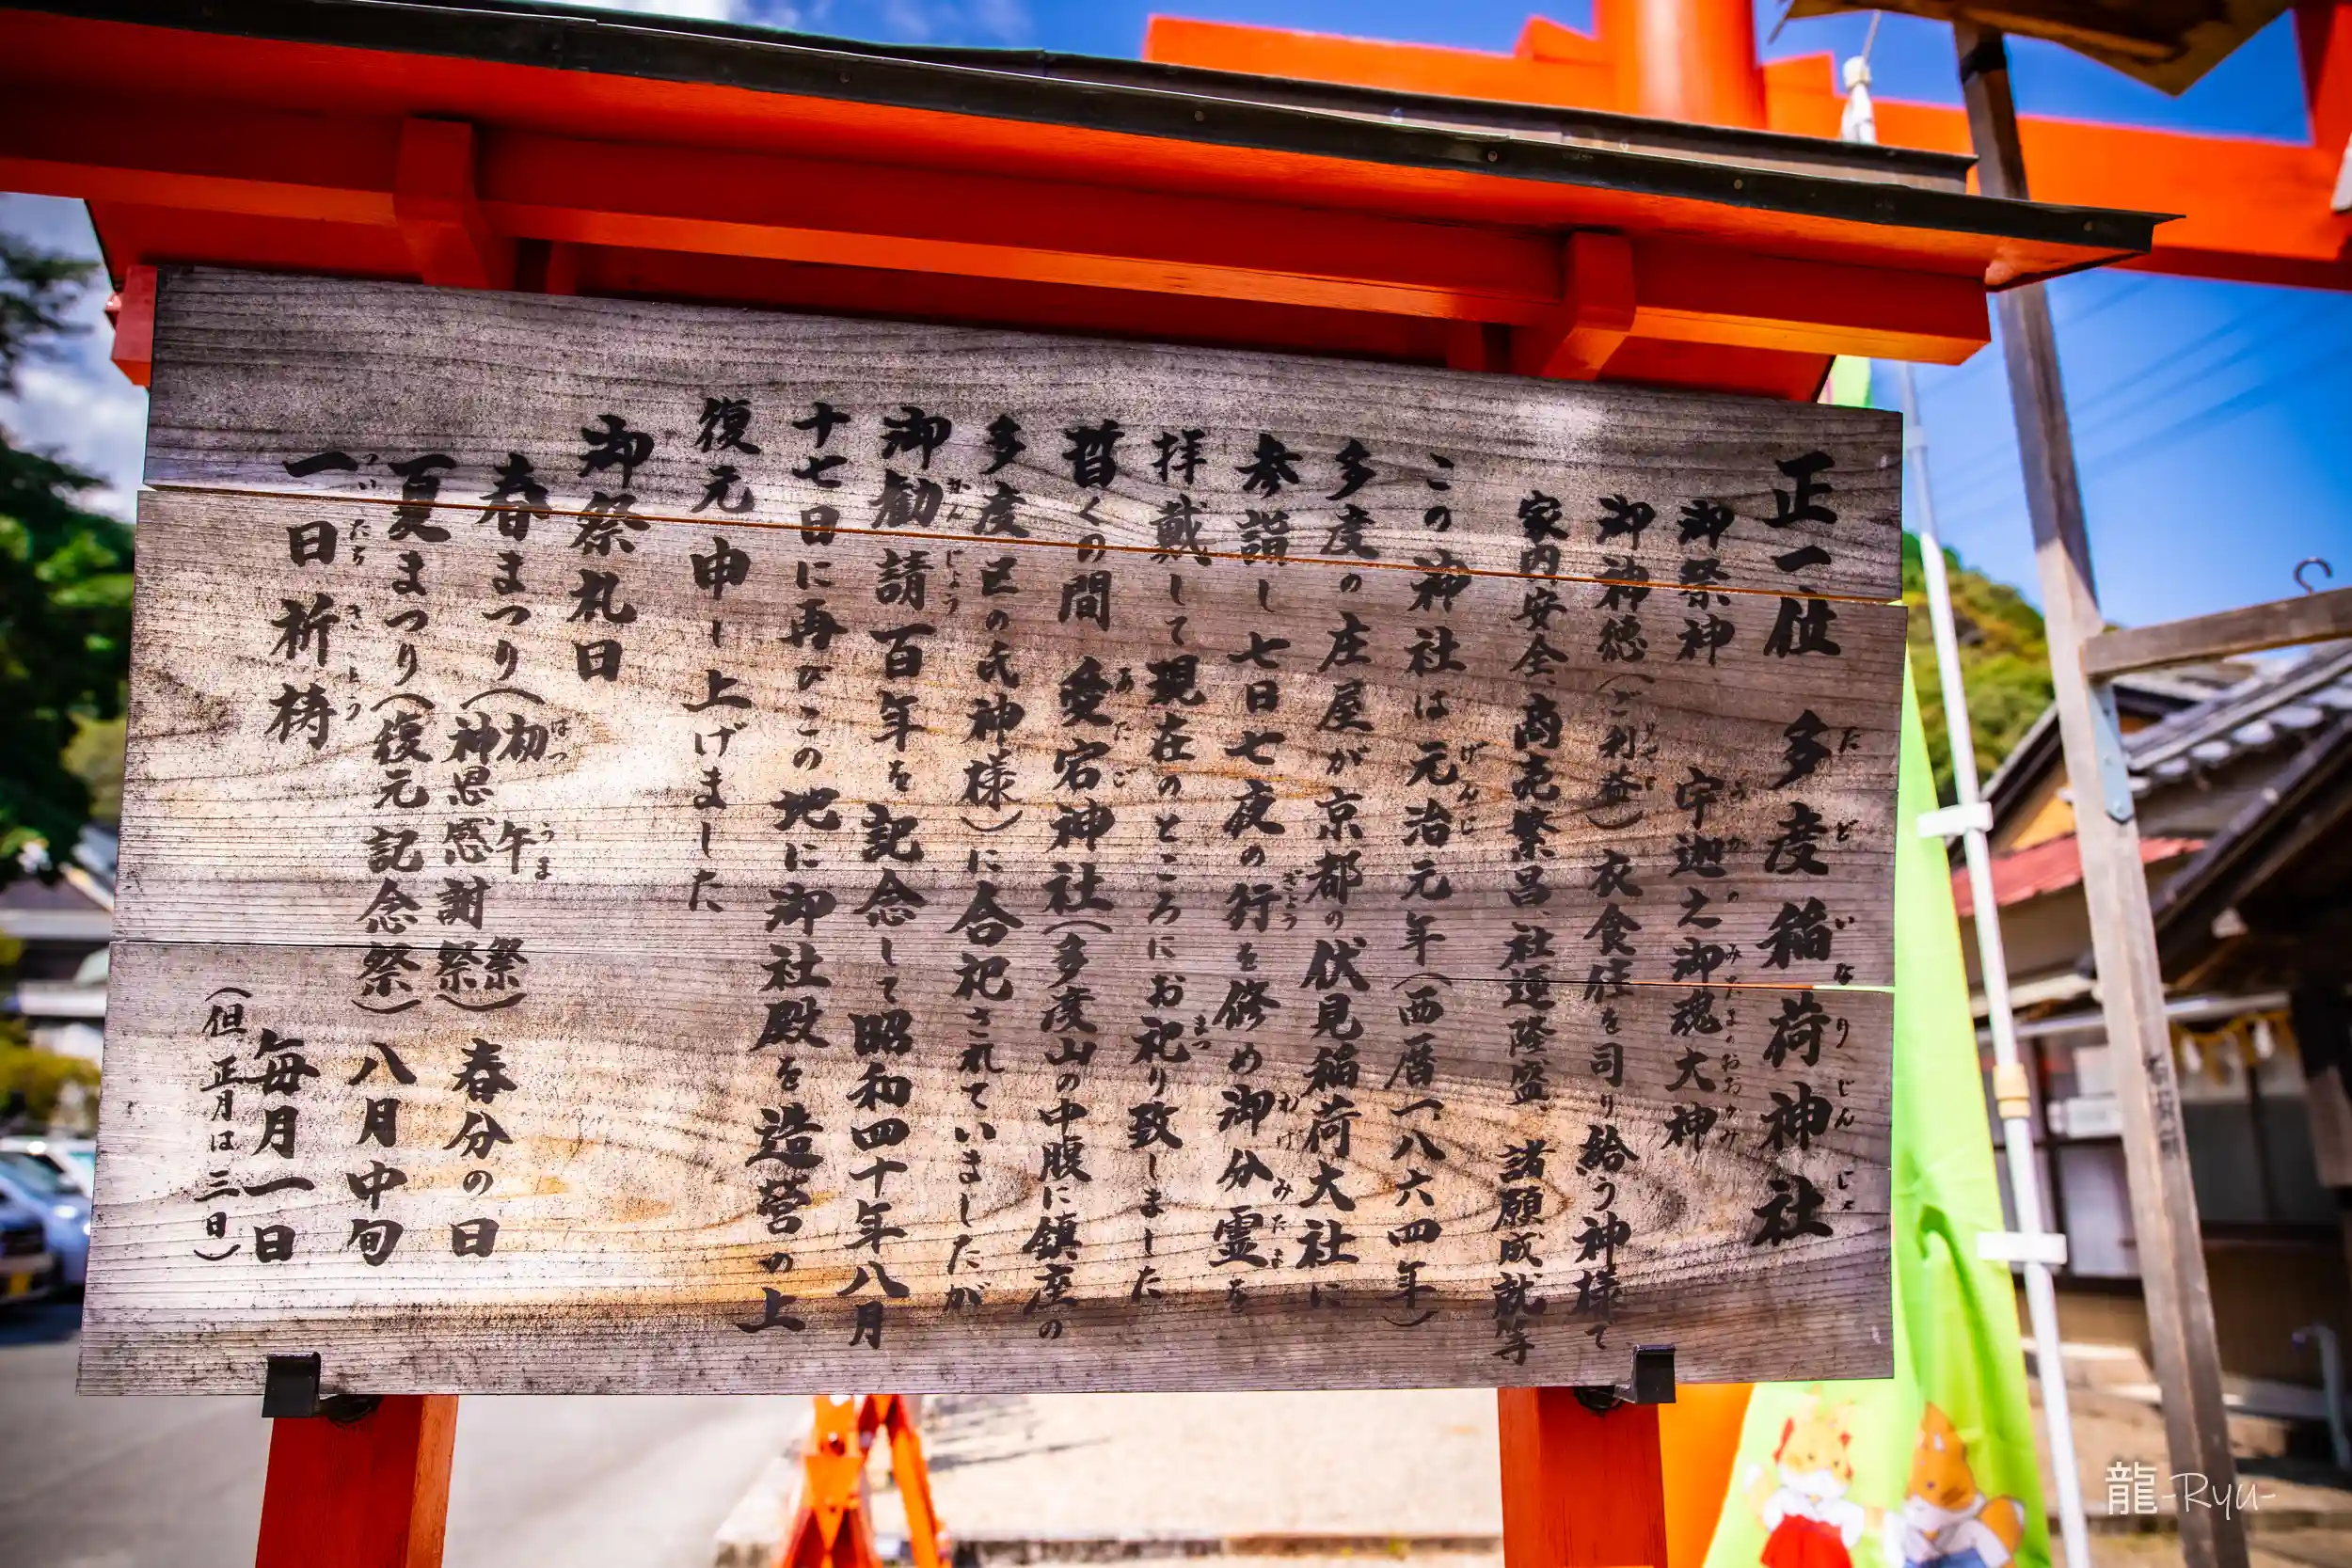 正一位 多度稲荷神社
御祭神 宇迦之御魂大神
御神徳(ご利益)衣食住を司り給う神様で
家内安全、商売繁昌、社運隆盛、諸願成就等
この神社は元治元年(西暦一八六四年)
多度の庄屋が京都の伏見稲荷大社に
参詣し七日七夜の行を修め御分霊を
拝戴して現在のところにお祀り致しました
暫くの間 愛宕神社(多度山の中腹に鎮座の
多度区の氏神様)に合祀されていましたが
御勧請百年を記念して昭和四十年八月
十七日に再びこの地に御社殿を造営の上
復元申し上げました
御祭礼日
春まつり(初午祭 神恩感謝祭) 春分の日
夏まつり(復元記念祭) 八月中旬
一日祈祷 毎月一日
(但正月は三日)
龍-Ryu-